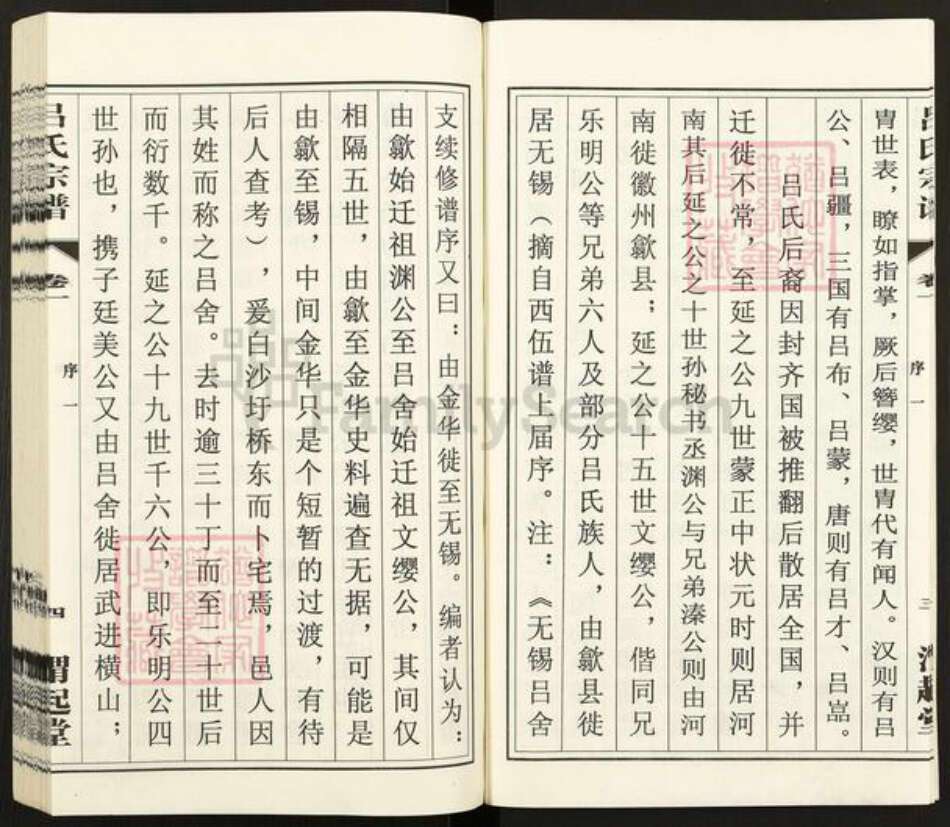 胄世表，瞭如指掌，厥后簪缨，世胄代有闻人。汉则有吕
公、吕疆，三国有吕布、吕蒙，唐则有吕才、吕嵓。
吕氏后裔因封齐国被推翻后散居全国，并
迁徙不常，至延之公九世蒙正中状元时则居河
南其后延之公之十世孙秘书丞渊公与兄弟溱公则由河
南徙徽州歙县；延之公十五世文缨公，偕同兄
乐明公等兄弟六人及部分吕氏族人，由歙县徙
居无锡（摘自西伍谱上届序。注：《无锡吕舍
支续修谱序又曰：由金华徙至无锡。编者认为：
由歙始迁祖渊公至吕舍始迁祖文缨公，其间仅
相隔五世，由歙至金华史料遍查无据，可能是
由歙至锡，中间金华只是个短暂的过渡，有待
后人查考），爰白沙圩桥东而卜宅焉，邑人因
其姓而称之吕舍。去时逾三十丁而至二十世后
而衍数千。延之公十九世千六公，即乐明公四
世孙也，携子廷美公又由吕舍徙居武进横山；
吕氏宗谱
卷一
序一
四
渭起堂
吕氏宗谱
卷一
序一
三
渭起堂
FamilySearch